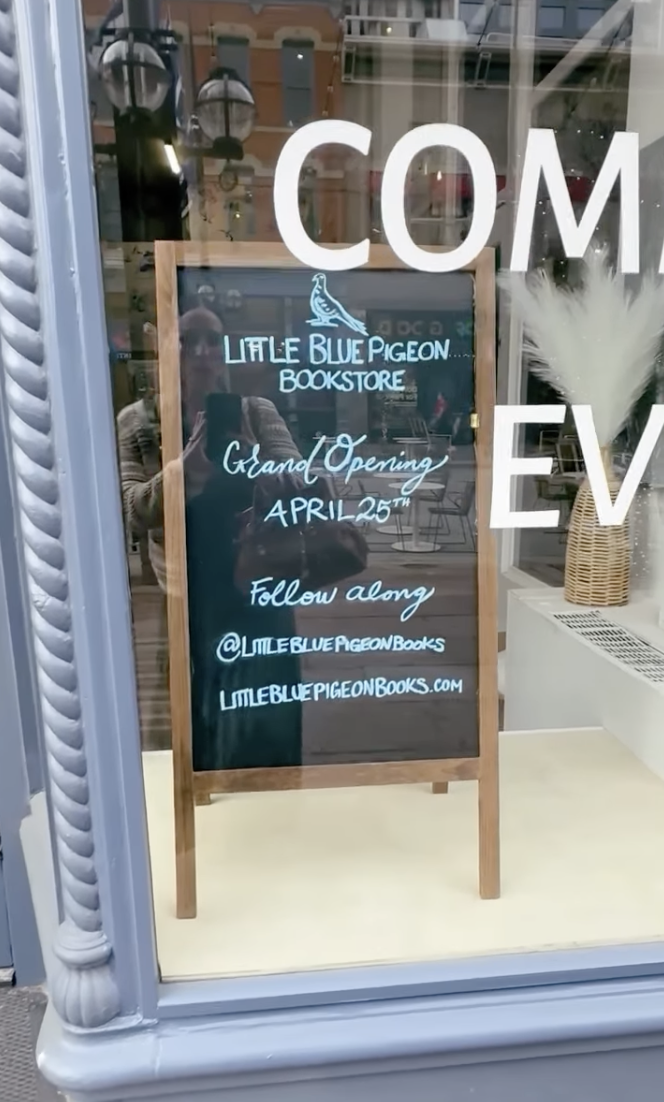 COM
LITTLE BLUE PIGEON
BOOKSTORE
EV
Grand Opening
APRIL 25TH
Follow along
@LITTLEBLUEPIGEONBOOKS
LITTLEBLUEPIGEONBOOKS.COM